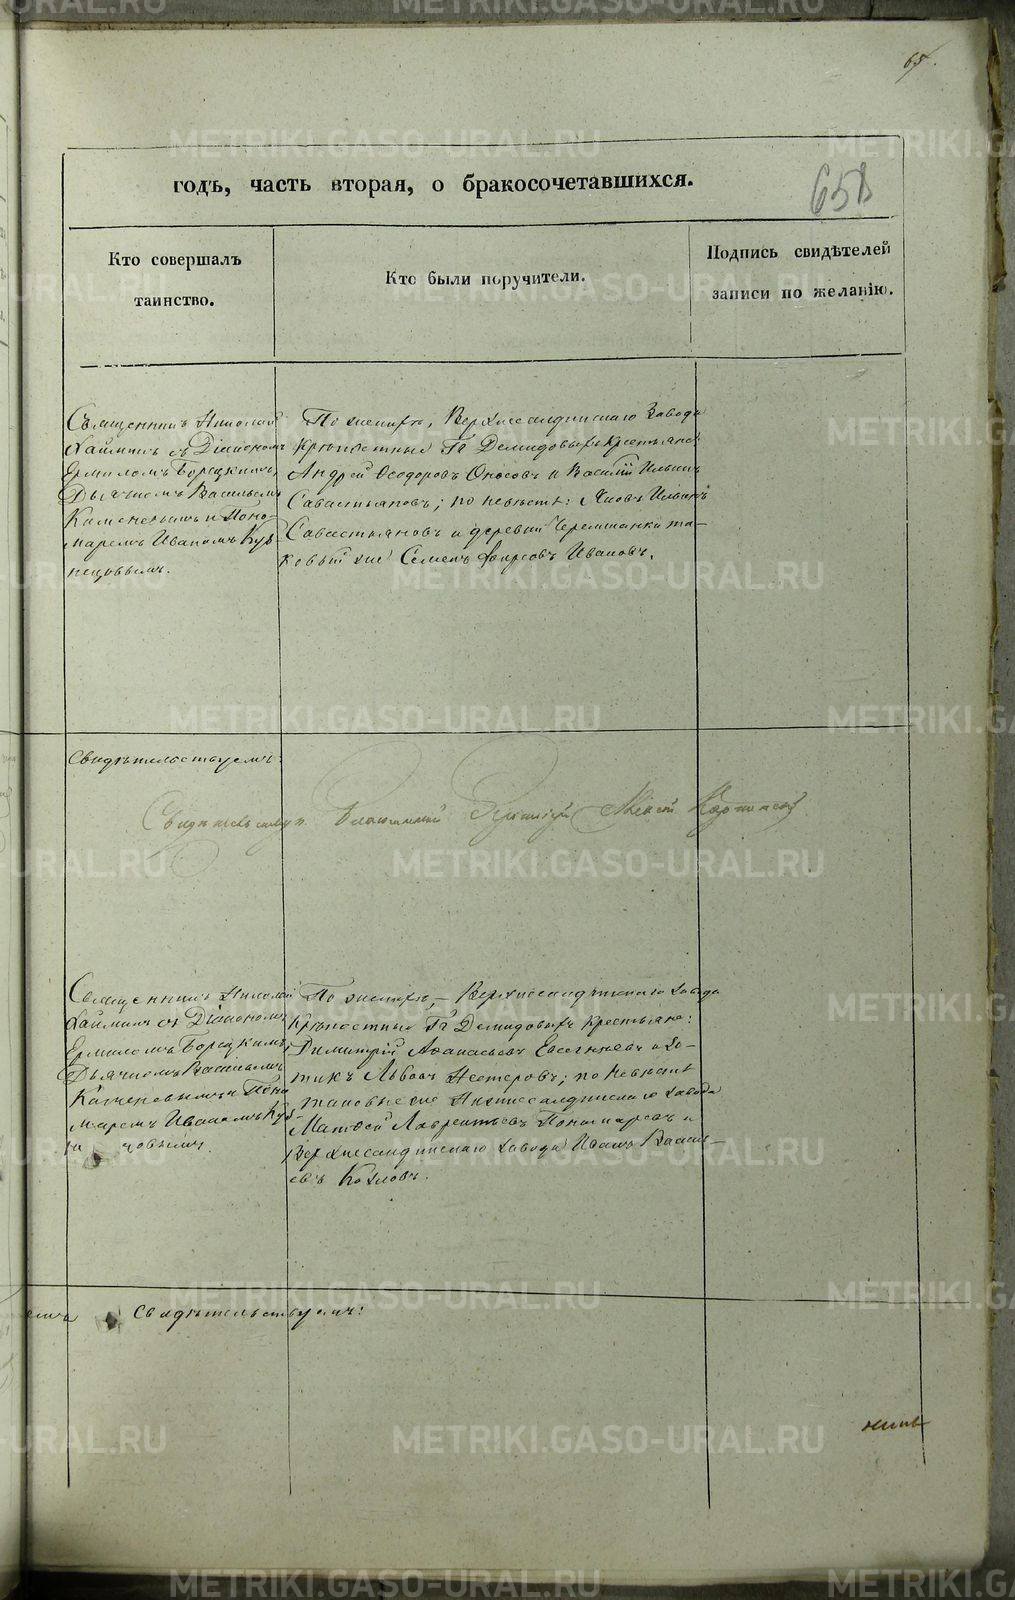 65.
658
годъ, часть вторая, о бракосочетавшихся.
Кто совершалъ
таинство.
Кто были поручители.
Подпись свидѣтелей
записи по желанію.
Священникъ Николай
съ Діакономъ
Ермиломъ Борецкимъ,
Дьячкомъ Васильемъ
и Поно-
маремъ Иваномъ Куз-
нецовымъ.
По женихѣ, Верхнесалдинскаго Завода
Крѣпостные Гг Демидовыхъ Крестьяне
Андрей Ѳеодоровъ Оносовъ и Василій Ильинъ
Савастьяновъ; по невѣстѣ: Яковъ Ильинъ
Савастьяновъ и деревни Черемшанки та-
ковый же Семенъ Фирсовъ Ивановъ.
Свидѣтельствуемъ:
Священникъ Николай
съ Діакономъ
Ермиломъ Борецкимъ,
Дьячкомъ Васильемъ
и Поно-
маремъ Иваномъ Куз-
цовымъ.
По женихѣ, – Верхнесалдинскаго завода
Крѣпостные Гг Демидовыхъ Крестьяне:
Димитрій Аѳанасьевъ Евсегнѣевъ и Зо-
тикъ Львовъ Нестеровъ; по невѣстѣ
таковые же Нижнесалдинскаго завода
Матвей Лаврентьевъ Пономаревъ и
Верхнесалдинскаго завода Иванъ Василь-
евъ Козловъ.
Свидѣтельствуемъ:
METRIKI.GASO-URAL.RU